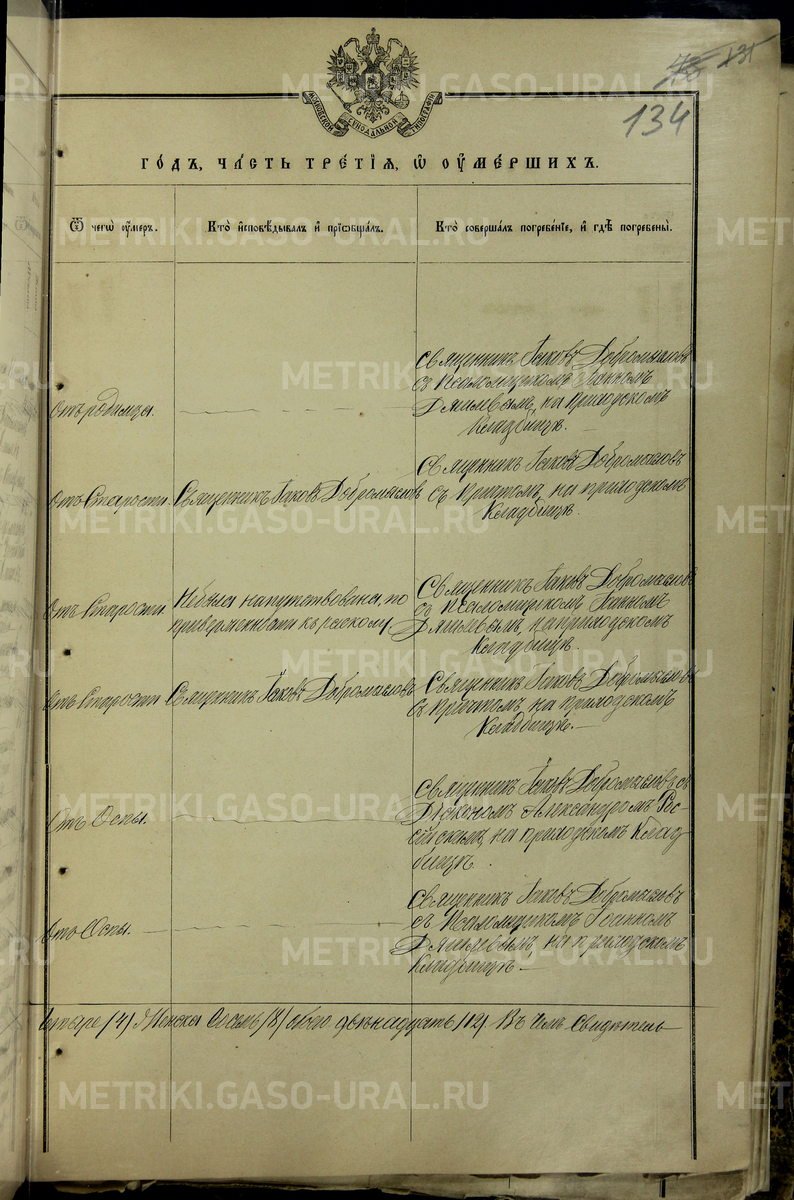 135
134
МОСКОВСКОЙ СѴНОДАЛЬНОЙ ТИПОГРАФІИ
ГОДЪ, ЧАСТЬ ТРЕТІЯ, Ѿ ОУМЕРШИХЪ.
Ѿ чегѡ оумеръ.
Кто исповѣдывалъ и пріобщалъ.
Кто совершалъ погребеніе, и гдѣ погребены.
Отъ родимца.
Священникъ Іаковъ Добромысловъ
съ Псаломщикомъ Іоанномъ
на приходскомъ
Кладбищѣ.
Отъ Старости
Священникъ Іаковъ Добромысловъ
Священникъ Іаковъ Добромысловъ
съ Причтомъ, на приходскомъ
Кладбищѣ.
Отъ Старости
Небыла напутствована, по
приверженности къ расколу.
Священникъ Іаковъ Добромысловъ
съ Псаломщикомъ Іоанномъ
на приходскомъ
Кладбищѣ.
Отъ Старости
Священникъ Іаковъ Добромысловъ
Священникъ Іаковъ Добромысловъ
съ Причтомъ на приходскомъ
Кладбищѣ.
Отъ Оспы.
Священникъ Іаковъ Добромысловъ съ
Діакономъ Александромъ
на приходскомъ Клад
бищѣ.
Отъ Оспы.
Священникъ Іаковъ Добромысловъ
съ Псаломщикомъ Іоанномъ
на приходскомъ
Кладбищѣ.
четыре /4/ Женска Осемь /8/ обоего двѣнадцать /12/ Въ чемъ Свидѣтель
METRIKI.GASO-URAL.RU